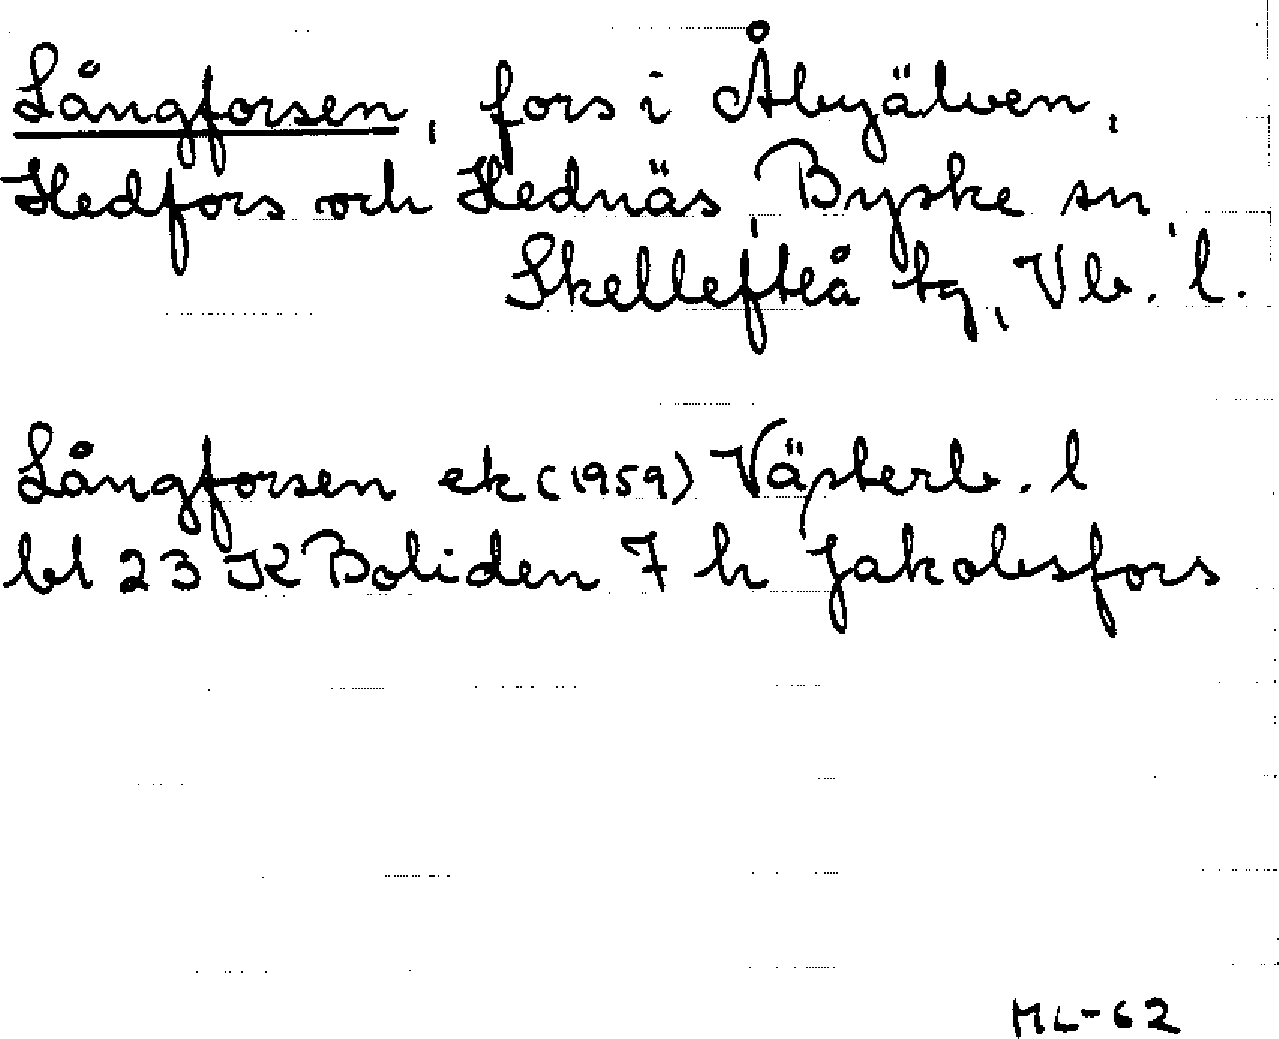 Långforsen, fors i Åbyälven,
Hedfors och Hednäs, Byske sn,
Skellefteå tg, Vb. l.
Långforsen ek (1959) Västerb. l
bl 23 K Boliden 7 h Jakobsfors
ML-62